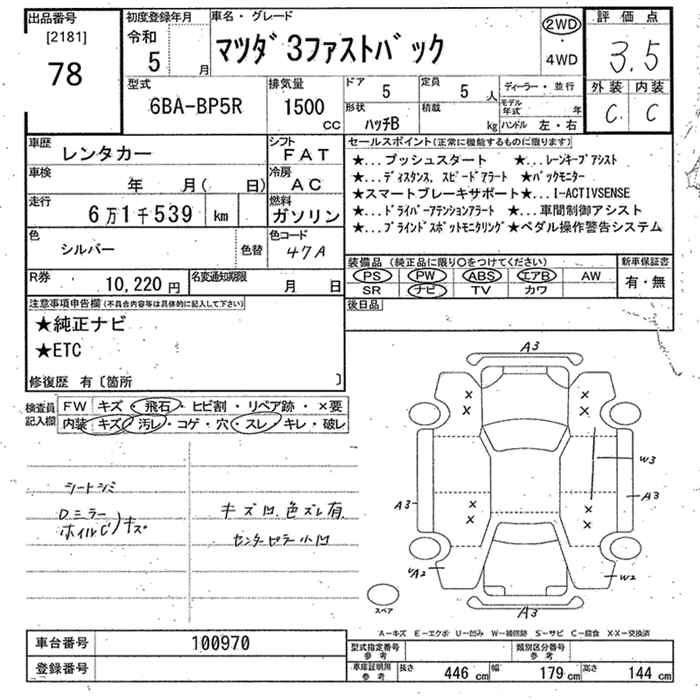 出品番号
[2181]
78
初度登録年月
令和
5 月
車名・グレード
マツダ 3ファストバック
2WD
・
4WD
評価点
3.5
外装 内装
C C
型式
6BA-BP5R
排気量
1500
CC
ドア
5
定員
5 人
形状
ハッチB
積載
kg
ディーラー・並行
モデル年式 年
ハンドル 左・右
車歴
レンタカー
シフト
FAT
車検
年 月( 日)
冷房
AC
走行
6万1千539 km
燃料
ガソリン
色
シルバー
色替
色コード
47A
R券
10,220円
名変通知期限
月 日
セールスポイント(正常に機能するものに限ります)
★...プッシュスタート ★...レーンキープアシスト
★...ディスタンス、スピードアラート ★バックモニター
★スマートブレーキサポート★...I-ACTIVSENSE
★...ドライバーアテンションアラート ★...車間制御アシスト
★...ブラインドスポットモニタリング★ペダル操作警告システム
装備品(純正品に限り○をつけてください)
PS PW ABS エアB AW
SR ナビ TV カワ
新車保証書
有・無
後日品
注意事項申告欄(不具合内容等は具体的に記入して下さい)
★純正ナビ
★ETC
修復歴 有〔箇所 〕
検査員
記入欄
FW キズ・飛石・ヒビ割・リペア跡・×要
内装・キズ・汚レ・コゲ・穴・スレ・キレ・破レ
シートシミ
Dミラー
ホイルC)キズ
キズ凹、色ズレ有
センターピラー小凹
A3
W3
A3
A3
A2
W2
A3
スペア
A-キズ E-エクボ U-凹み W-補修跡 S-サビ C-腐食 X-X-交換済
車台番号
100970
登録番号
型式指定番号
参考
類別区分番号
参考
車庫証明用
参考
長さ 446 cm 幅 179 cm 高さ 144 cm